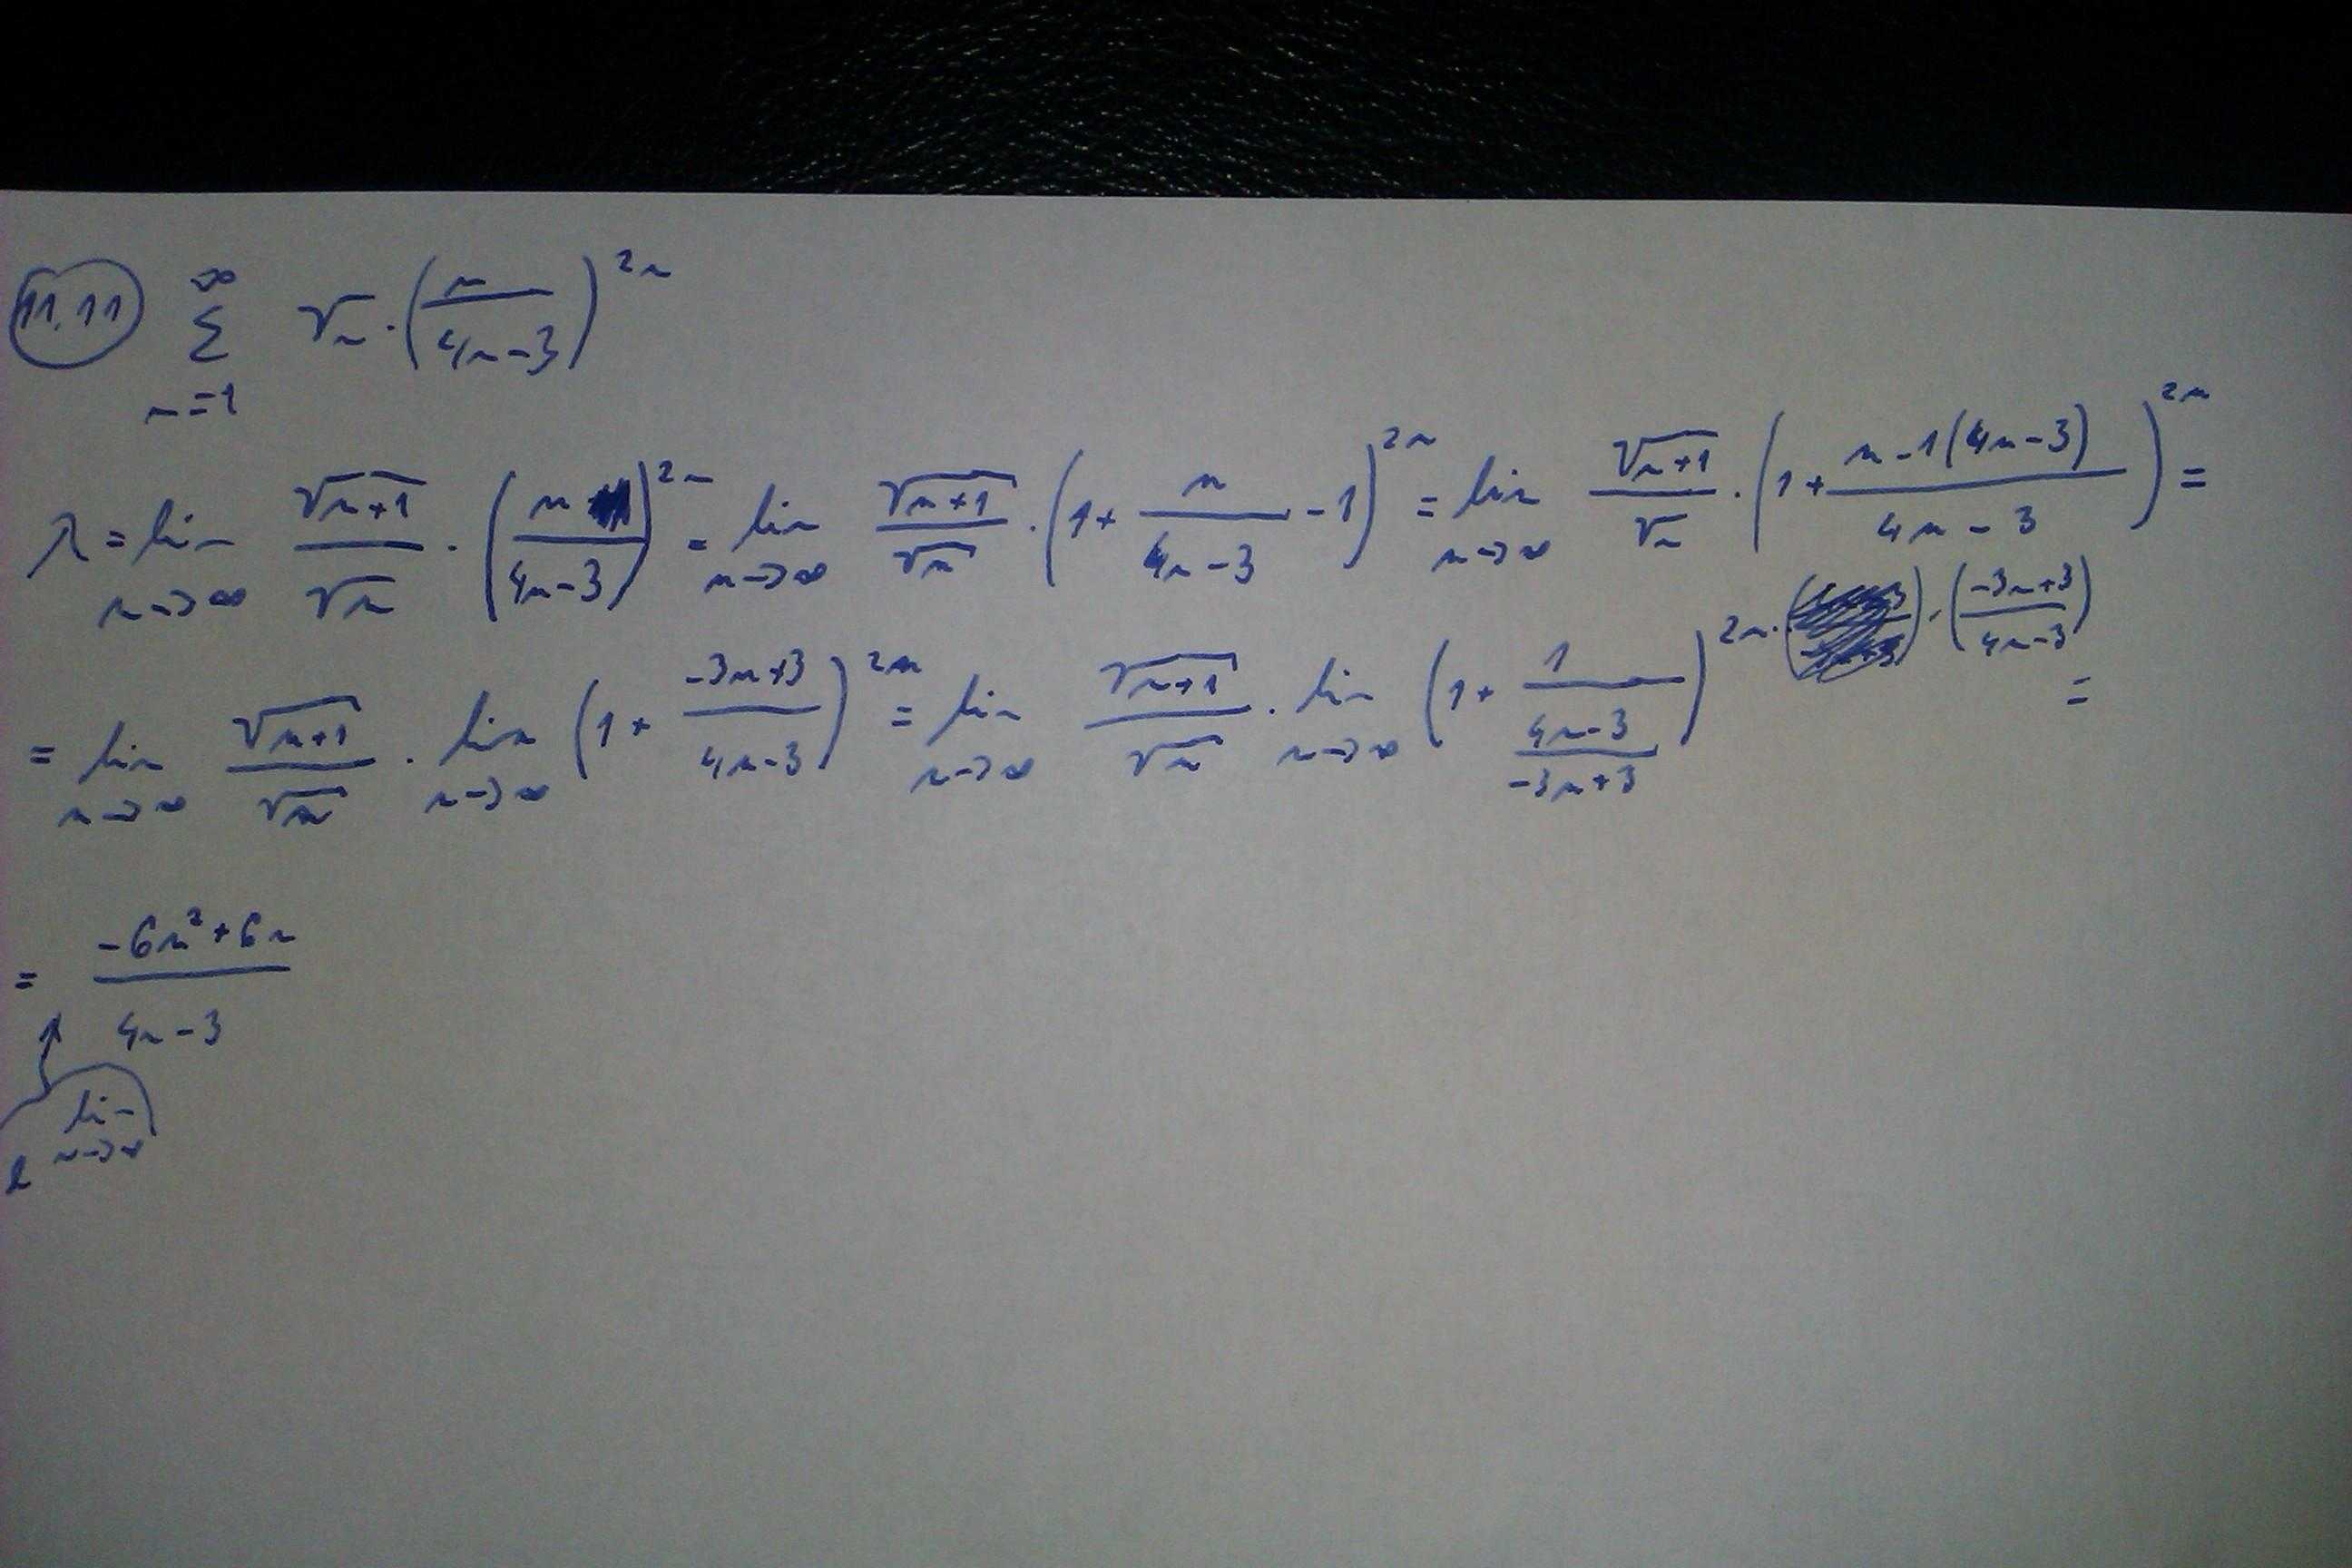 11.11 ∞ Σ n=1 √n · (n / 4n-3)^2n
λ = lim n→∞ √n+1 / √n · (n / 4n-3)^2n = lim n→∞ √n+1 / √n · (1 + n / 4n-3 - 1)^2n = lim n→∞ √n+1 / √n · (1 + n-1(4n-3) / 4n-3)^2n =
= lim n→∞ √n+1 / √n · lim n→∞ (1 + -3n+3 / 4n-3)^2n = lim n→∞ √n+1 / √n · lim n→∞ (1 + 1 / 4n-3 / -3n+3)^2n · · (-3n+3 / 4n-3) =
= -6n²+6n / 4n-3
e lim n→∞